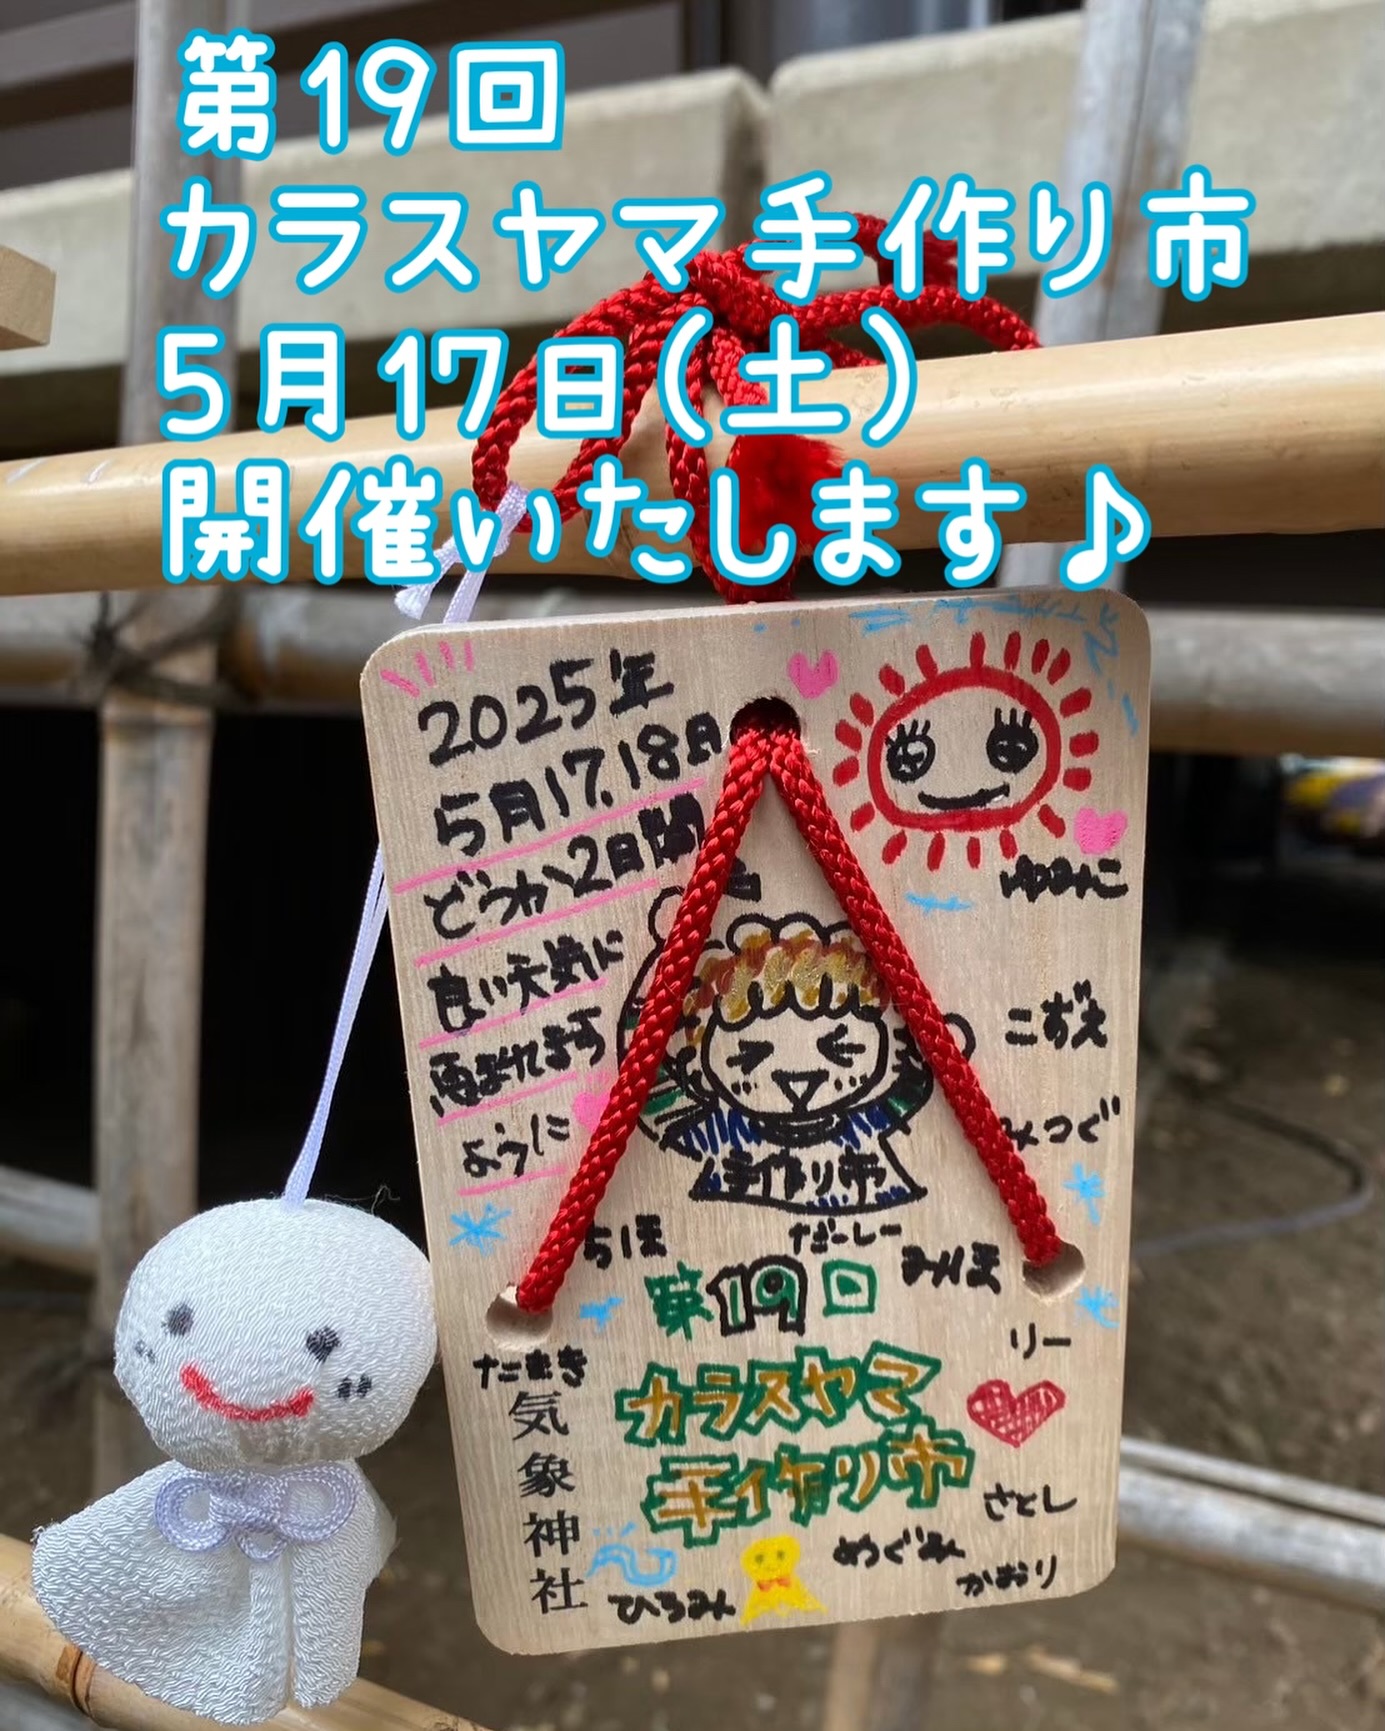 第19回
カラスヤマ手作り市
5月17日(土)
開催いたします♪
2025年
5月17.18日
どうか2日間
良い天気に
恵まれます
ように
こずえ
みつぐ
手作り市
ちほ
だーしー
みんほ
第19回
リー
たむき
カラスヤマ
手作り市
さとし
気象神社
めぐみ
かおり
ひろみん